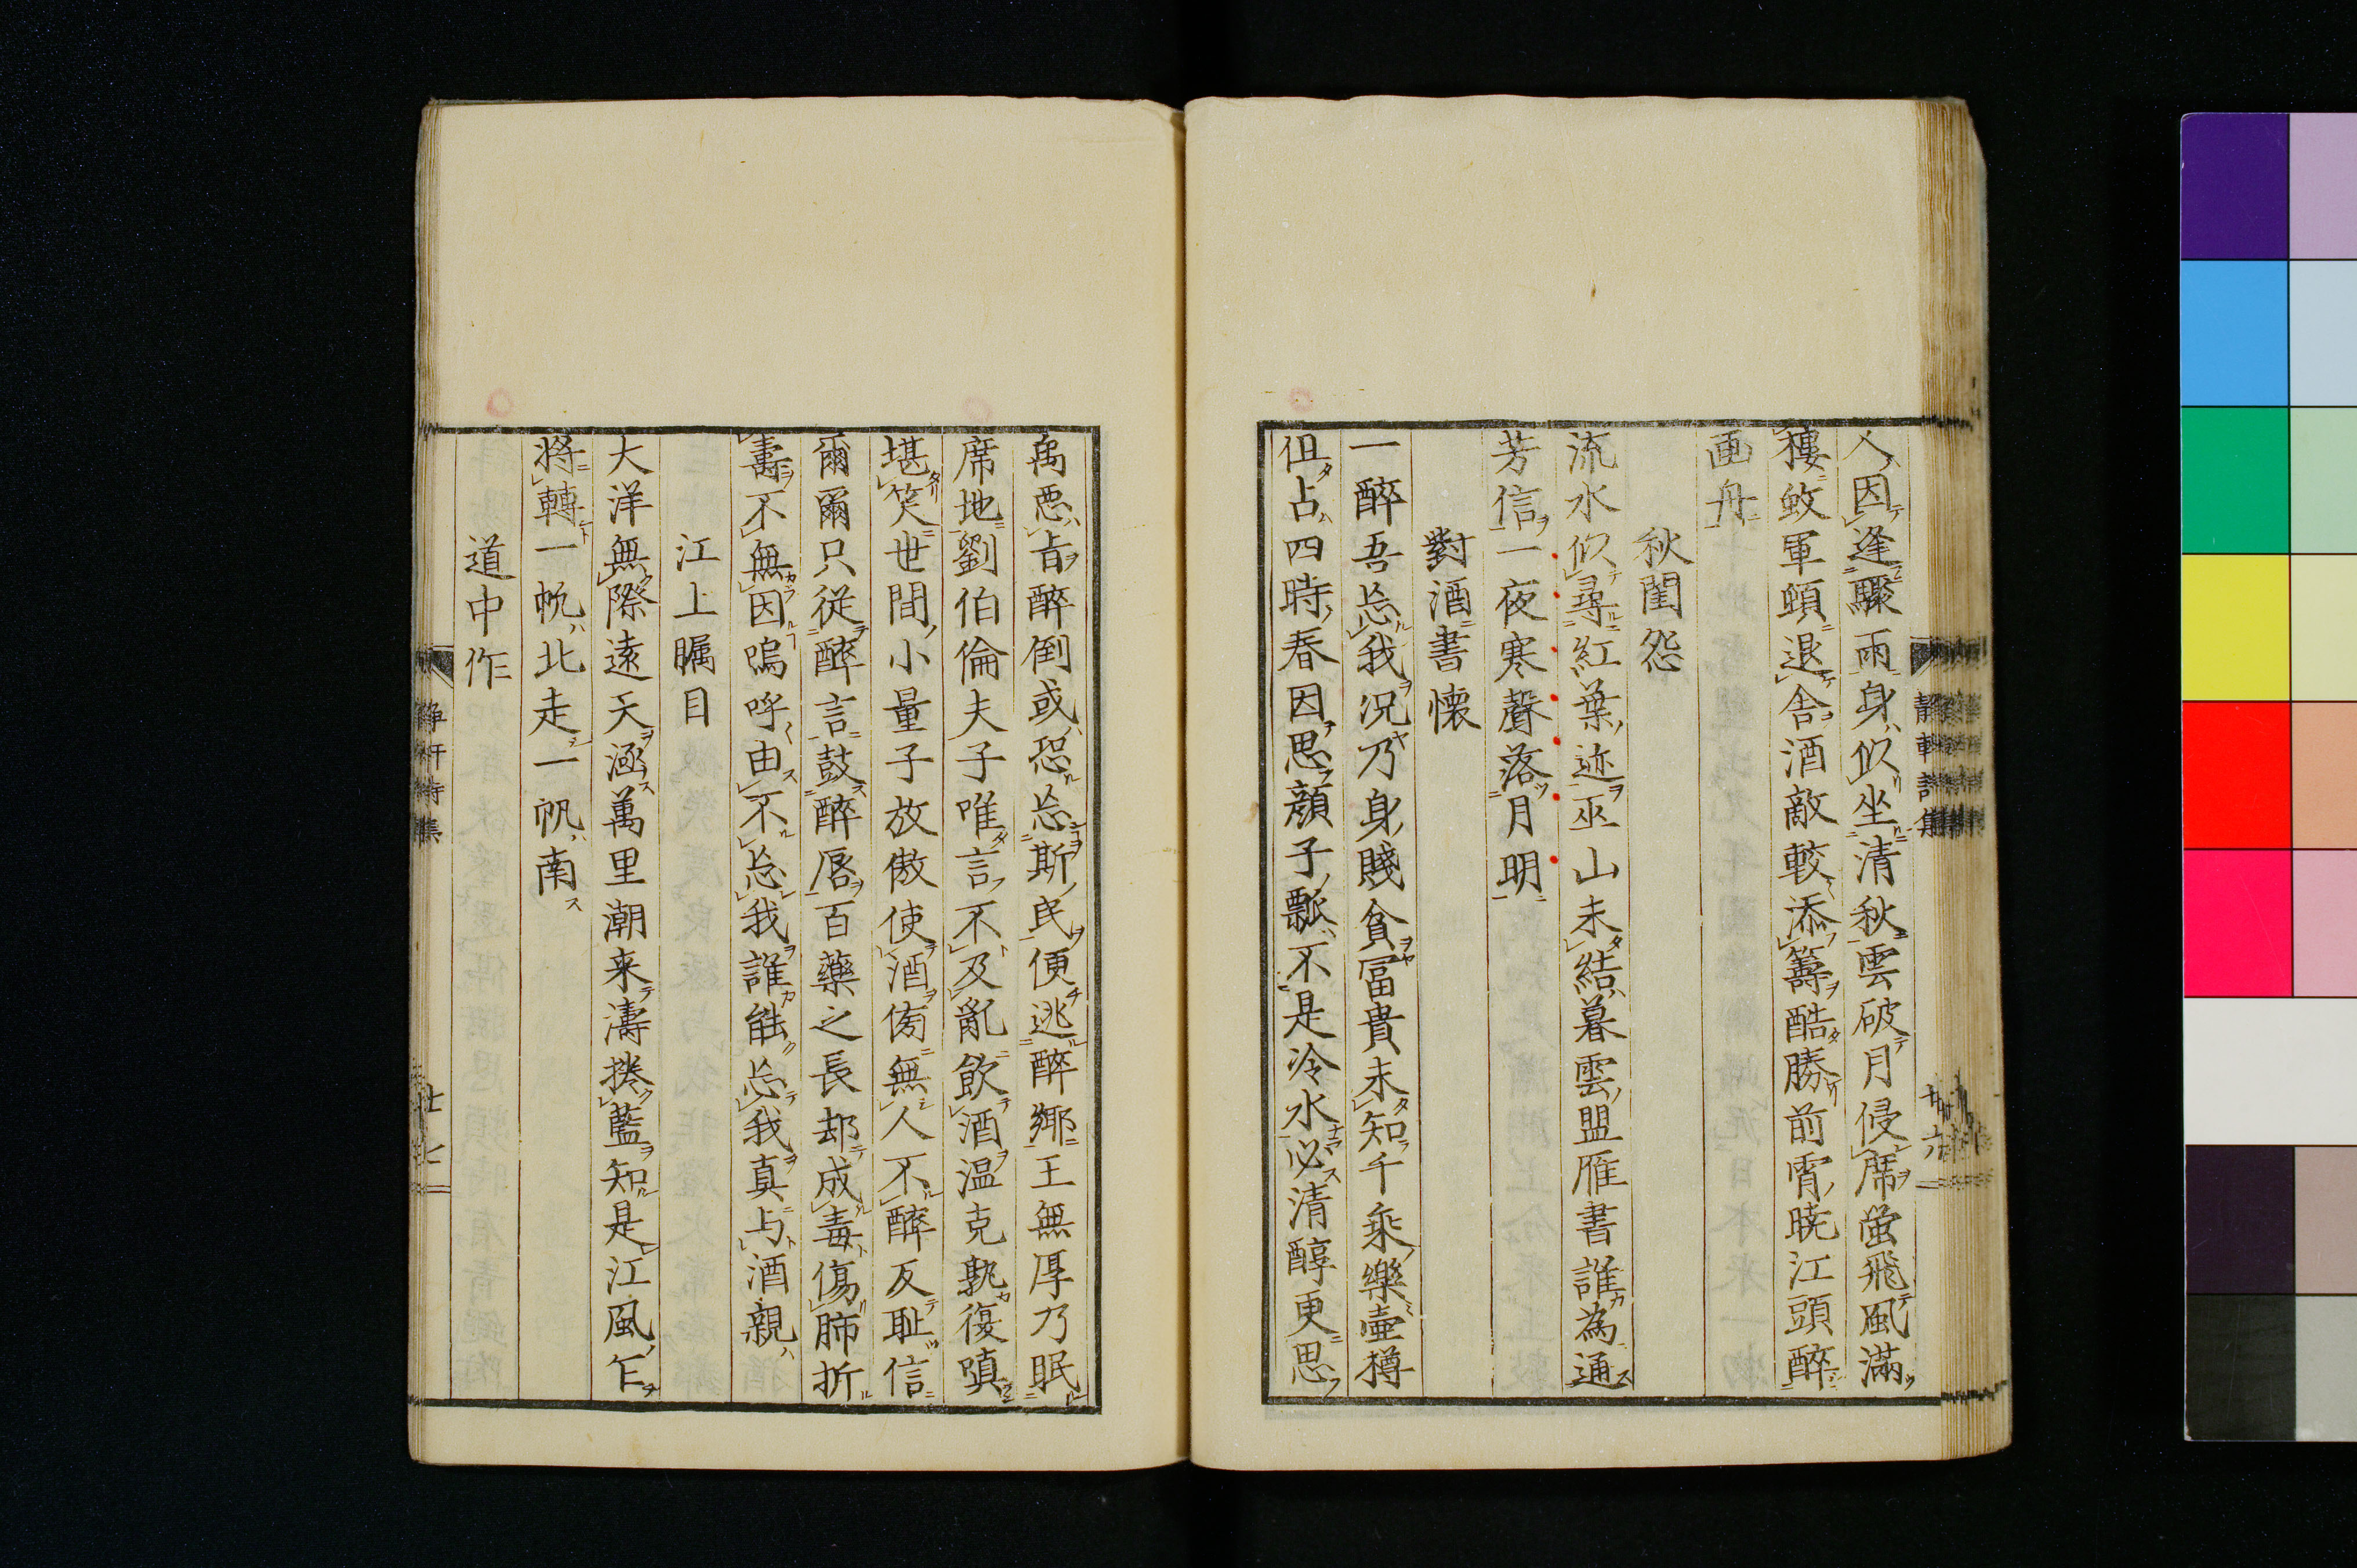 人因逢驟雨身似坐清秋雲破月侵席螢飛風滿
樓蚊軍頻退舎酒敵較添籌酷勝前宵暁江頭醉
画舟
秋閨怨
流水似尋紅葉迹巫山未結暮雲盟雁書誰為通
芳信一夜寒聲落月明
對酒書懷
一醉吾忘我況乃身賤貧冨貴未知千乘樂壷樽
但占四時春因思顔子瓢不是冷水必清醇更思
禹惡旨醉倒或恐忘斯民便逃醉鄉王無厚乃眠
席地劉伯倫夫子唯言不及亂飲酒温克孰復嗔
堪笑世間小量子放傲使酒傍無人不醉反耻信
爾爾只從醉言鼓醉唇百藥之長却成毒傷肺折
壽不無因嗚呼由不忘我誰能忘我真与酒親
江上矚目
大洋無際遠天涵萬里潮来濤捲藍知是江風乍
將轉一帆北走一帆南
道中作
静軒詩集
廿六
廿七